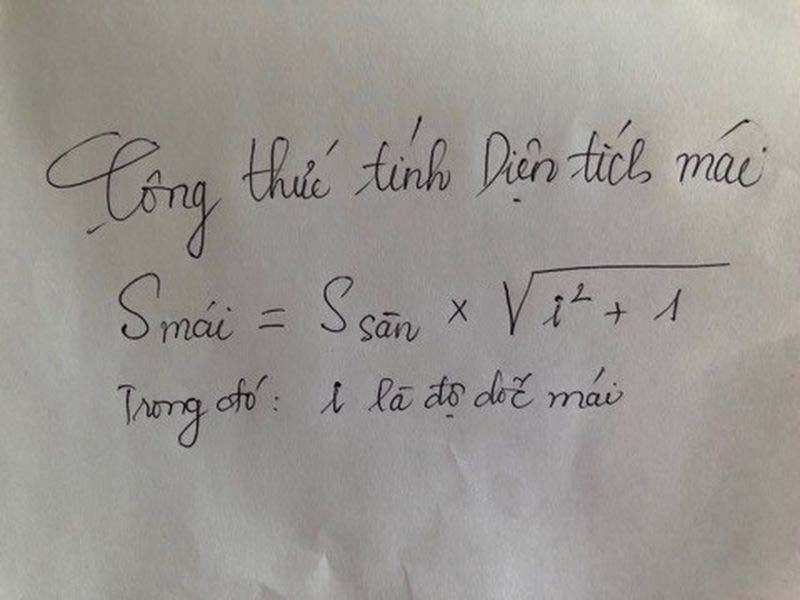 Công thức tính Diện tích mái
S mái = S sàn × √(i² + 1)
Trong đó: i là độ dốc mái